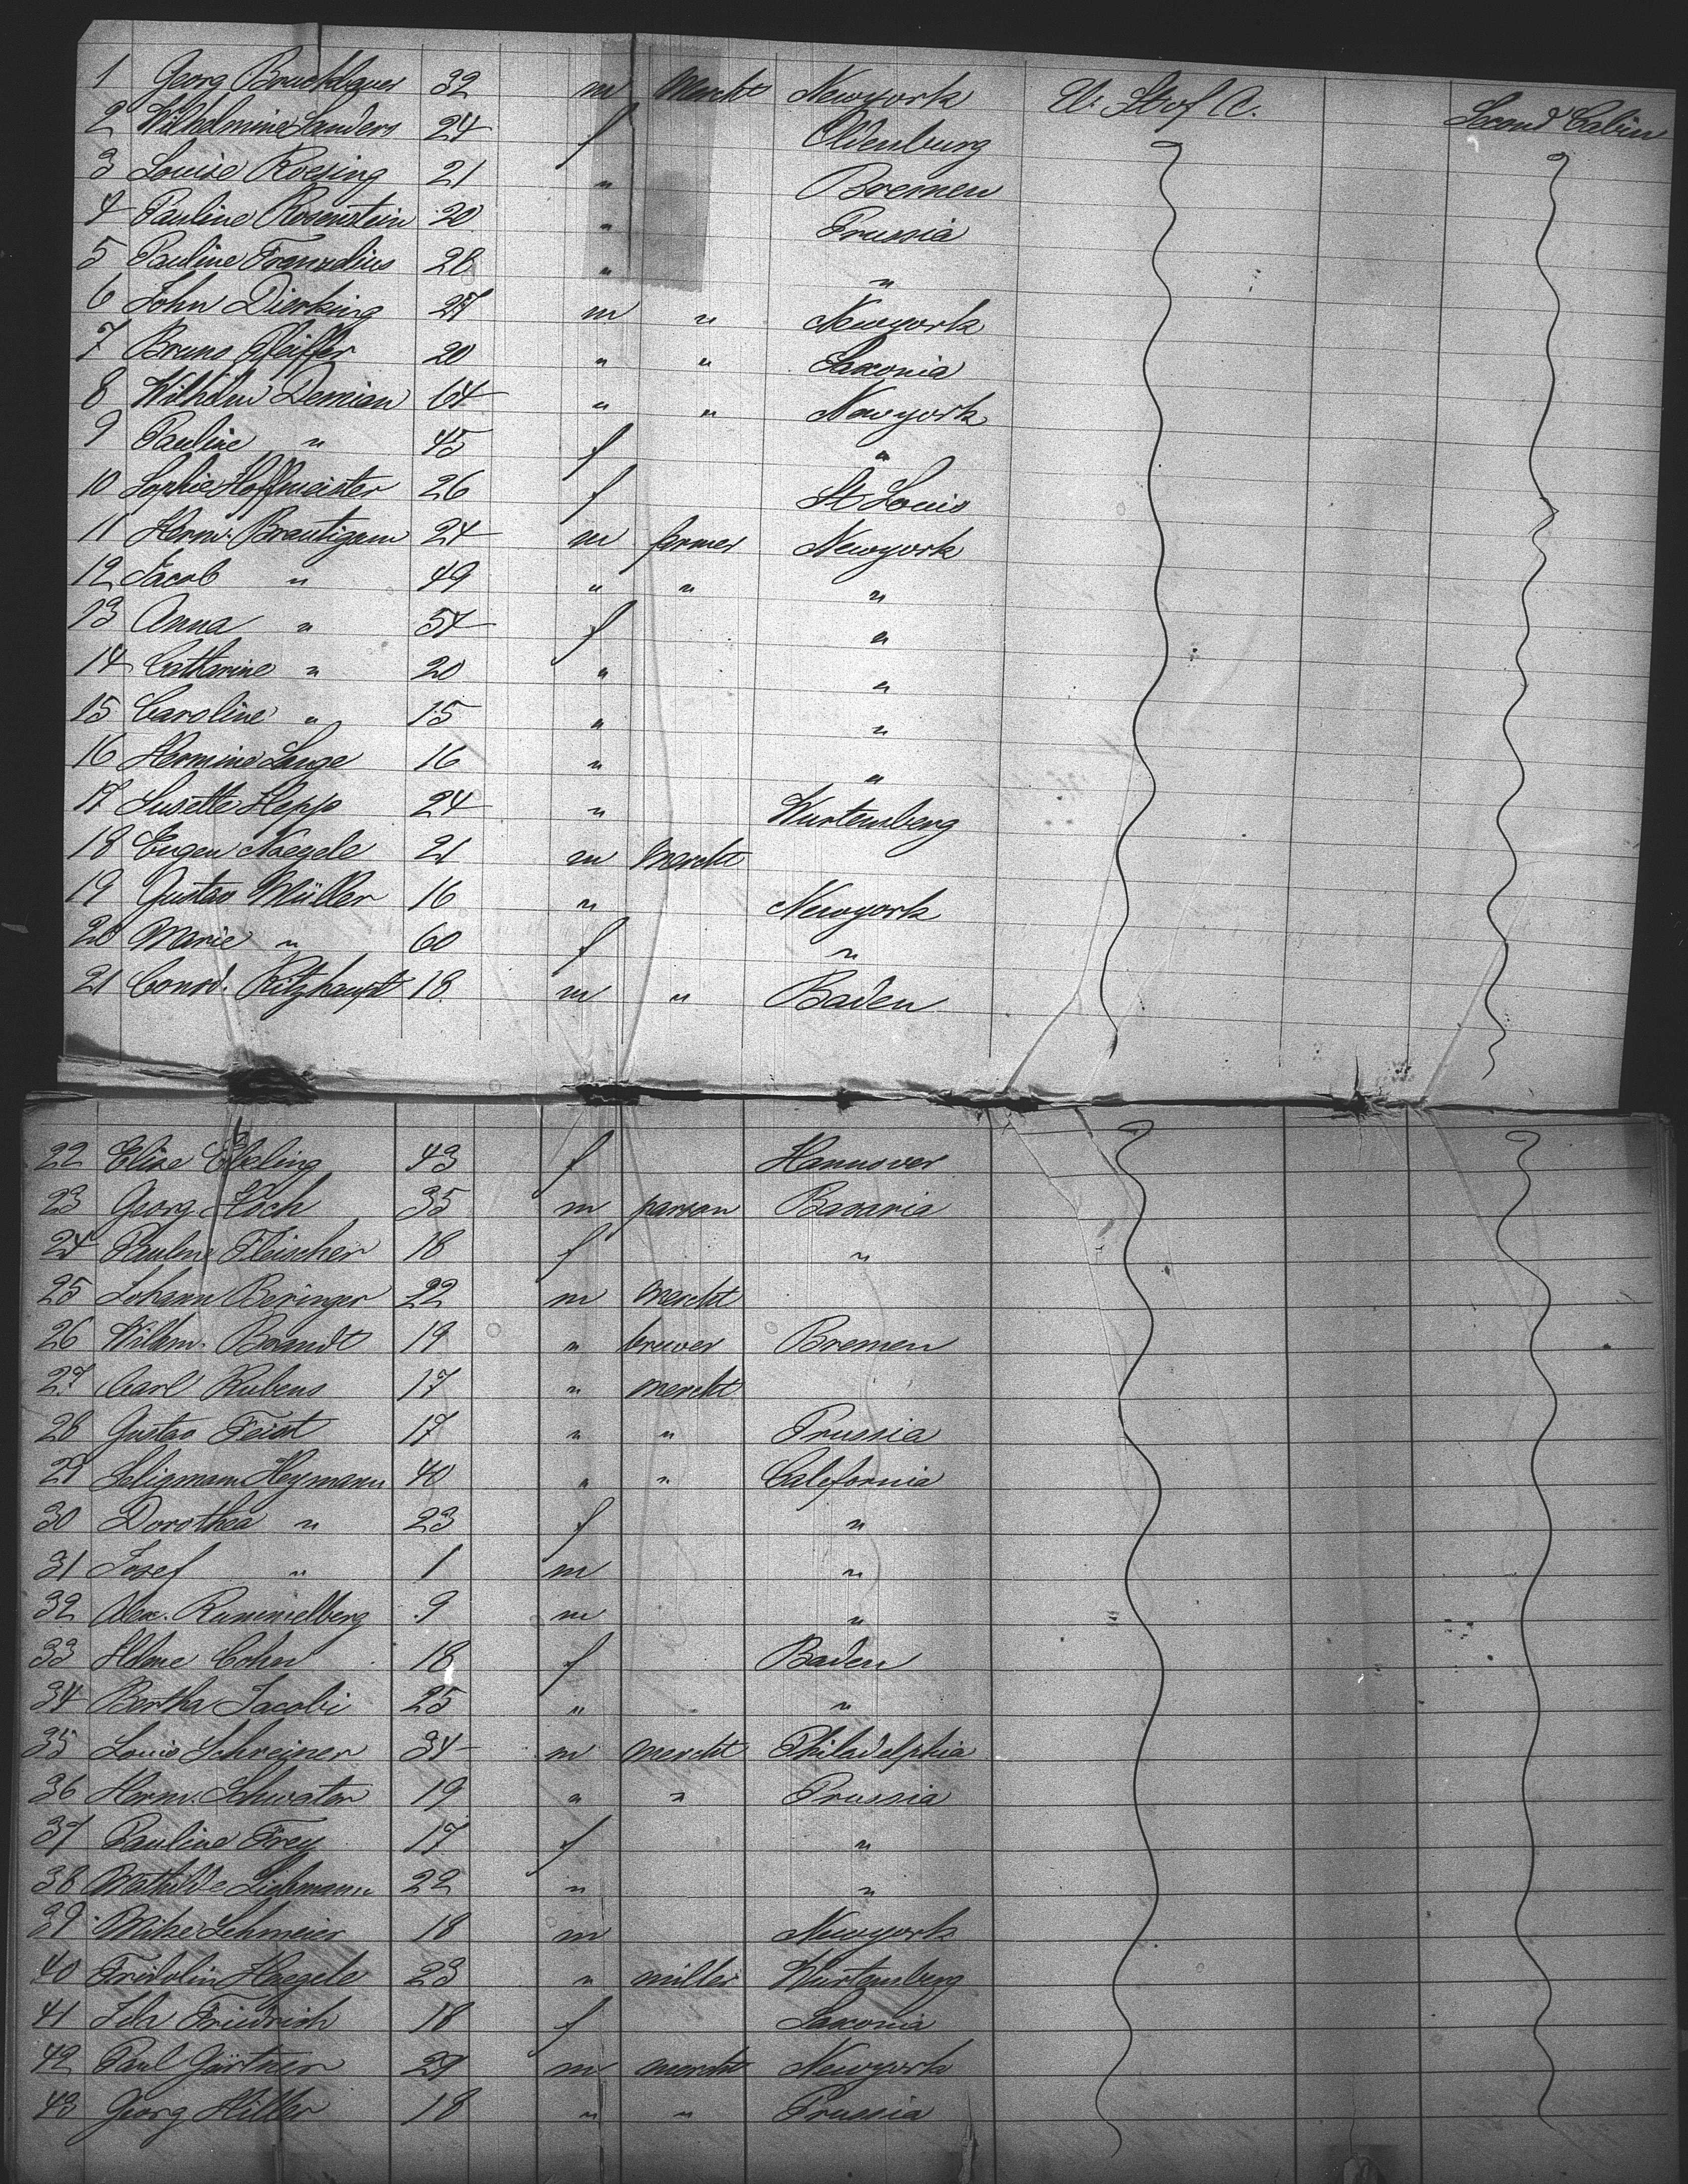 1 Georg Bruckbauer 32 m Mercht Newyork U. St. of A. Second Cabin
2 Wilhelmine Sanders 24 f Oldenburg
3 Louise Roesing 21 " Bremen
4 Pauline Rosenstein 20 " Prussia
5 Pauline Franzelius 28 " "
6 John Dierking 27 m " Newyork
7 Bruno Pfeiffer 20 " " Saxonia
8 Wilhelm Demian 64 " " Newyork
9 Pauline " 45 f "
10 Sophie Hoffmeister 26 f St Louis
11 Herm. Brautigam 24 m farmer Newyork
12 Jacob " 49 " " "
13 Anna " 54 f "
14 Catharine " 20 " "
15 Caroline " 15 " "
16 Hermine Lange 16 " "
17 Susette Hepp 24 " Wurtemberg
18 Eugen Naegele 21 m Mercht
19 Gustav Müller 16 " Newyork
20 Marie " 60 f "
21 Conrd. Ritzhaupt 18 m " Baden
22 Elise Ebeling 43 f Hannover
23 Georg Koch 35 m parson Bavaria
24 Pauline Fleischer 18 f "
25 Johann Beringer 22 m Mercht
26 Wilhm. Brandt 19 " brewer Bremen
27 Carl Rubens 17 " Mercht
28 Gustav Feist 17 " " Prussia
29 Seligmann Heymann 40 " " California
30 Dorothea " 23 f "
31 Josef " 1 m "
32 Alex. Rummelberg 9 m "
33 Helene Cohn 18 f Baden
34 Bertha Jacobi 25 " "
35 Louis Schreiner 34 m Mercht Philadelphia
36 Herm. 19 " " Prussia
37 Pauline Frey 17 f "
38 Mathilde Liebmann 22 " "
39 Mike 18 m Newyork
40 Fridolin Haegele 23 " miller Wurtemberg
41 Friedrich 18 f Saxonia
42 Paul Gärtner 29 m mercht Newyork
43 Georg Hiller 18 " " Prussia